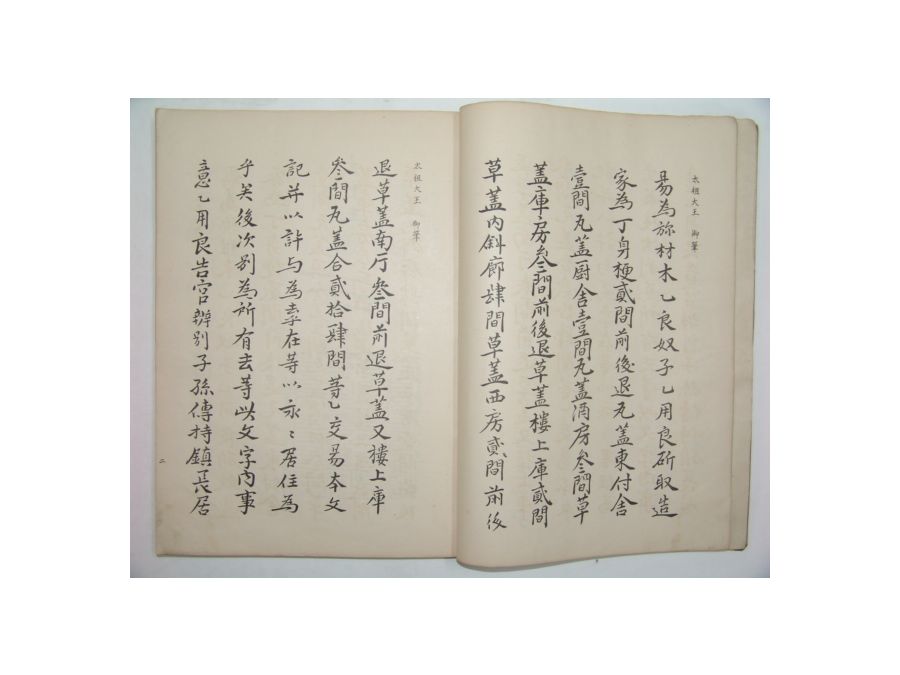 太祖大王 御筆
易為㫆材木乙良奴子乙用良斫取造
家為丁身梗貳間前後退瓦蓋東付舍
壹間瓦蓋厨舍壹間瓦蓋酒房叄間草
蓋庫房叄間前後退草蓋樓上庫貳間
草蓋內斜廊肆間草蓋西房貳間前後
太祖大王 御筆
退草蓋南厅叄間前退草蓋又樓上庫
叄間瓦蓋合貳拾肆間等乙交易本文
記幷以許与為去在等以永〻居住為
乎矣後次別為所有去等此文字內事
意乙用良告官辨別子孫傳持鎮長居
二